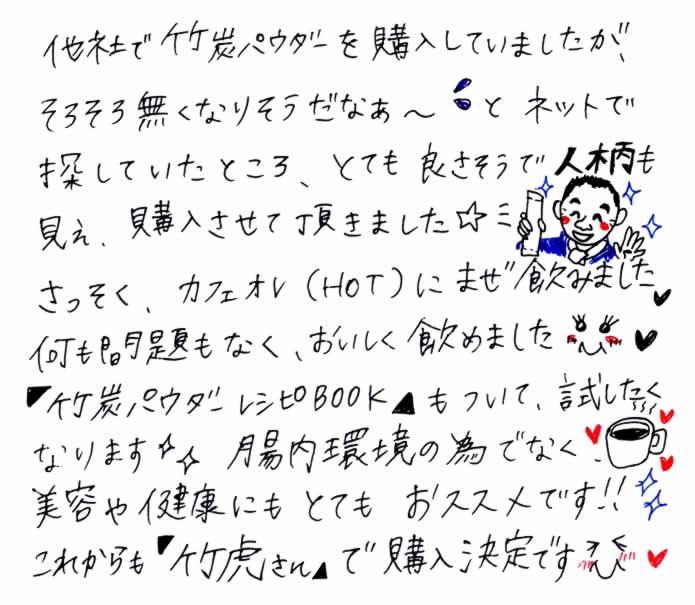 他社で竹炭パウダーを購入していましたが、
そろそろ無くなりそうだなぁ～とネットで
探していたところ、とても良さそうで人柄も
見え、購入させて頂きました☆ミ
さっそく、カフェオレ(HOT)にまぜ飲みました
何も問題もなく、おいしく飲めました♥
『竹炭パウダーレシピBOOK』もついて、試したく
なります✧✧ 腸内環境の為でなく、
美容や健康にもとてもおススメです!!
これからも『竹虎さん』で購入決定です♥